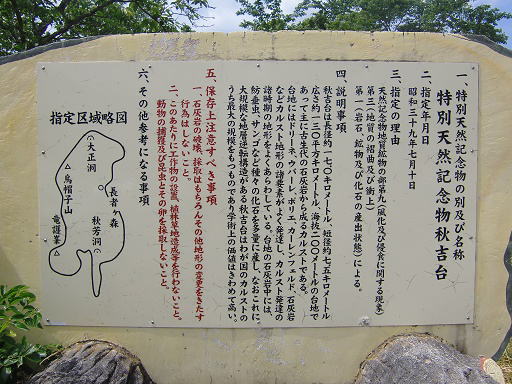 一、特別天然記念物の別及び名称
特別天然記念物秋吉台
二、指定年月日
昭和三十九年七月十日
三、指定の理由
天然記念物地質鉱物の部第九(風化及び侵食に関する現象)
第三(地質の褶曲及び衝上)
第一(岩石、鉱物及び化石の産出状態)による。
四、説明事項
秋吉台は長径約一七、〇キロメートル、短径約七、五キロメートル
広さ約一三〇平方キロメートル、海抜二〇〇メートルの台地で
あって主に古生代の石灰岩から成るカルストである。
台地にはドリーネ、ウバーレ、ポリエ、カーレンフェルド、石灰岩
などカルスト地形の諸要素がよく発達し、カルスト発達の
諸時期の地形をよくあらわしている。台地の石灰岩中には、
紡垂虫、サンゴなど種々の化石を多量に産し、なおこれに
大規模な地層逆転構造がある秋吉台はわが国のカルストの
うち最大の規模をもつものであり学術上の価値はきわめて高い。
五、保存上注意すべき事項
一、石灰岩の破壊、採取はもちろんその他地形の変更をきたす
行為はしないこと。
二、このあたりに工作物の設置、植林草地造成等を行わないこと。
動物の捕獲及び昆虫とその卵を採取しないこと。
六、その他参考になる事項
指定区域略図
大正洞
長者ヶ森
秋芳洞
烏帽子山
竜護峯